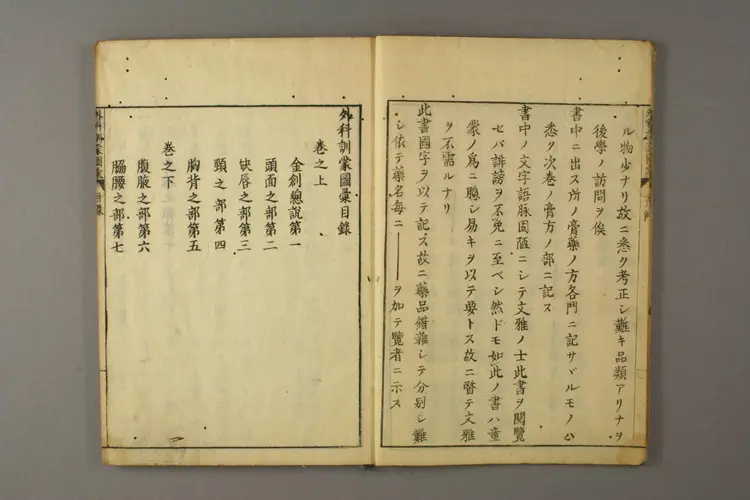 ル物少ナリ故ニ悉ク考正シ難キ品類アリナヲ
後學ノ訪問ヲ俟
書中ニ出ス所ノ膏藥ノ方各門ニ記サヾルモノハ
悉ク次巻ノ膏方ノ部ニ記ス
書中ノ文字語脉固陋ニシテ文雅ノ士此書ヲ閲覽
セバ誹謗ヲ不免ニ至ベシ然ドモ如此ノ書ハ童
蒙ノ爲ニ聰シ易キヲ以テ要トス故ニ瞖テ文雅
ヲ不需ルナリ
此書國字ヲ以テ記ス故ニ藥品錯雜シテ分別シ難
シ依テ藥名每ニ――ヲ加テ覽者ニ示ス
外科訓蒙圖彙目錄
巻之上
金創總說第一
頭面之部第二
缺唇之部第三
頸之部第四
胸背之部第五
巻之下
腹腋之部第六
脇腰之部第七
外科訓蒙圖彙 目錄